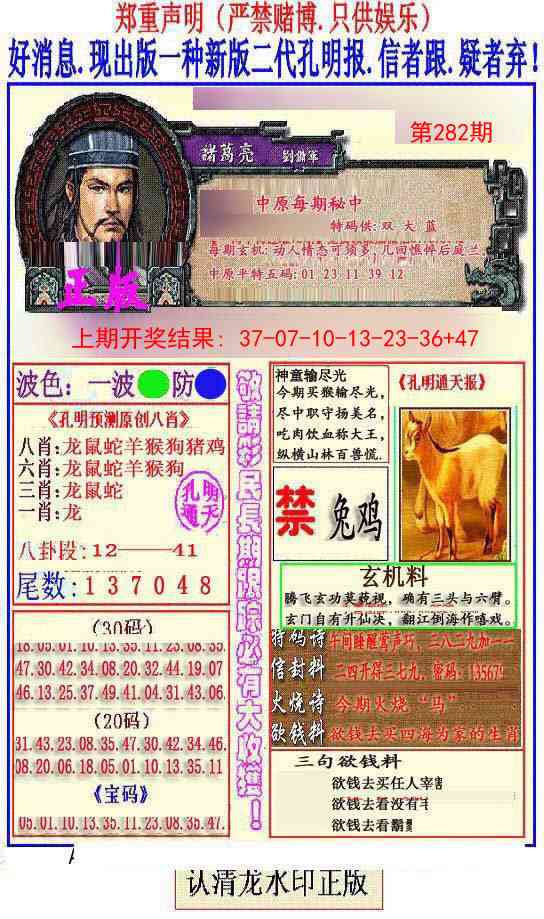 郑重声明（严禁赌博.只供娱乐）
好消息.现出版一种新版二代孔明报.信者跟.疑者弃！
第282期
諸葛亮
中原每期秘中
特码供: 双 大 蓝
每期玄机: 动人情态可须多 几回憔悴后庭兰.
中原平特五码: 01 23 11 39 12
正版
上期开奖结果: 37-07-10-13-23-36+47
波色: 一波 防
《孔明预测原创八肖》
八肖: 龙鼠蛇羊猴狗猪鸡
六肖: 龙鼠蛇羊猴狗
三肖: 龙鼠蛇
一肖: 龙
孔明
通天
八卦段: 12——41
尾数: 137048
(30码)
18.05.01.10.13.35.11.23.08.35.
47.30.42.34.08.20.32.44.19.07
46.13.25.37.49.41.04.31.43.06.
(20码)
31.43.23.08.35.47.30.42.34.46.
08.20.06.18.05.01.10.13.35.11
《宝码》
05.01.10.13.35.11.23.08.35.47.
敬請彩民長期跟踪必有大收獲！
神童输尽光
今期买猴输尽光，
尽中职守扬美名，
吃肉饮血称大王，
纵横山林百兽慌.
《孔明通天报》
禁 兔鸡
玄机料
腾飞玄功莫藐视，确有三头与六臂。
玄门自有升仙决，翻江倒海作嬉戏。
特码诗 午间睡醒莺声巧，三八二九加一一
信封料 二四开得三七九，密码：135679
火烧诗 今期火烧“马”
欲钱料 欲钱去买四海为家的生肖
三句欲钱料
欲钱去买任人宰
欲钱去看没有
欲钱去看
认清龙水印正版